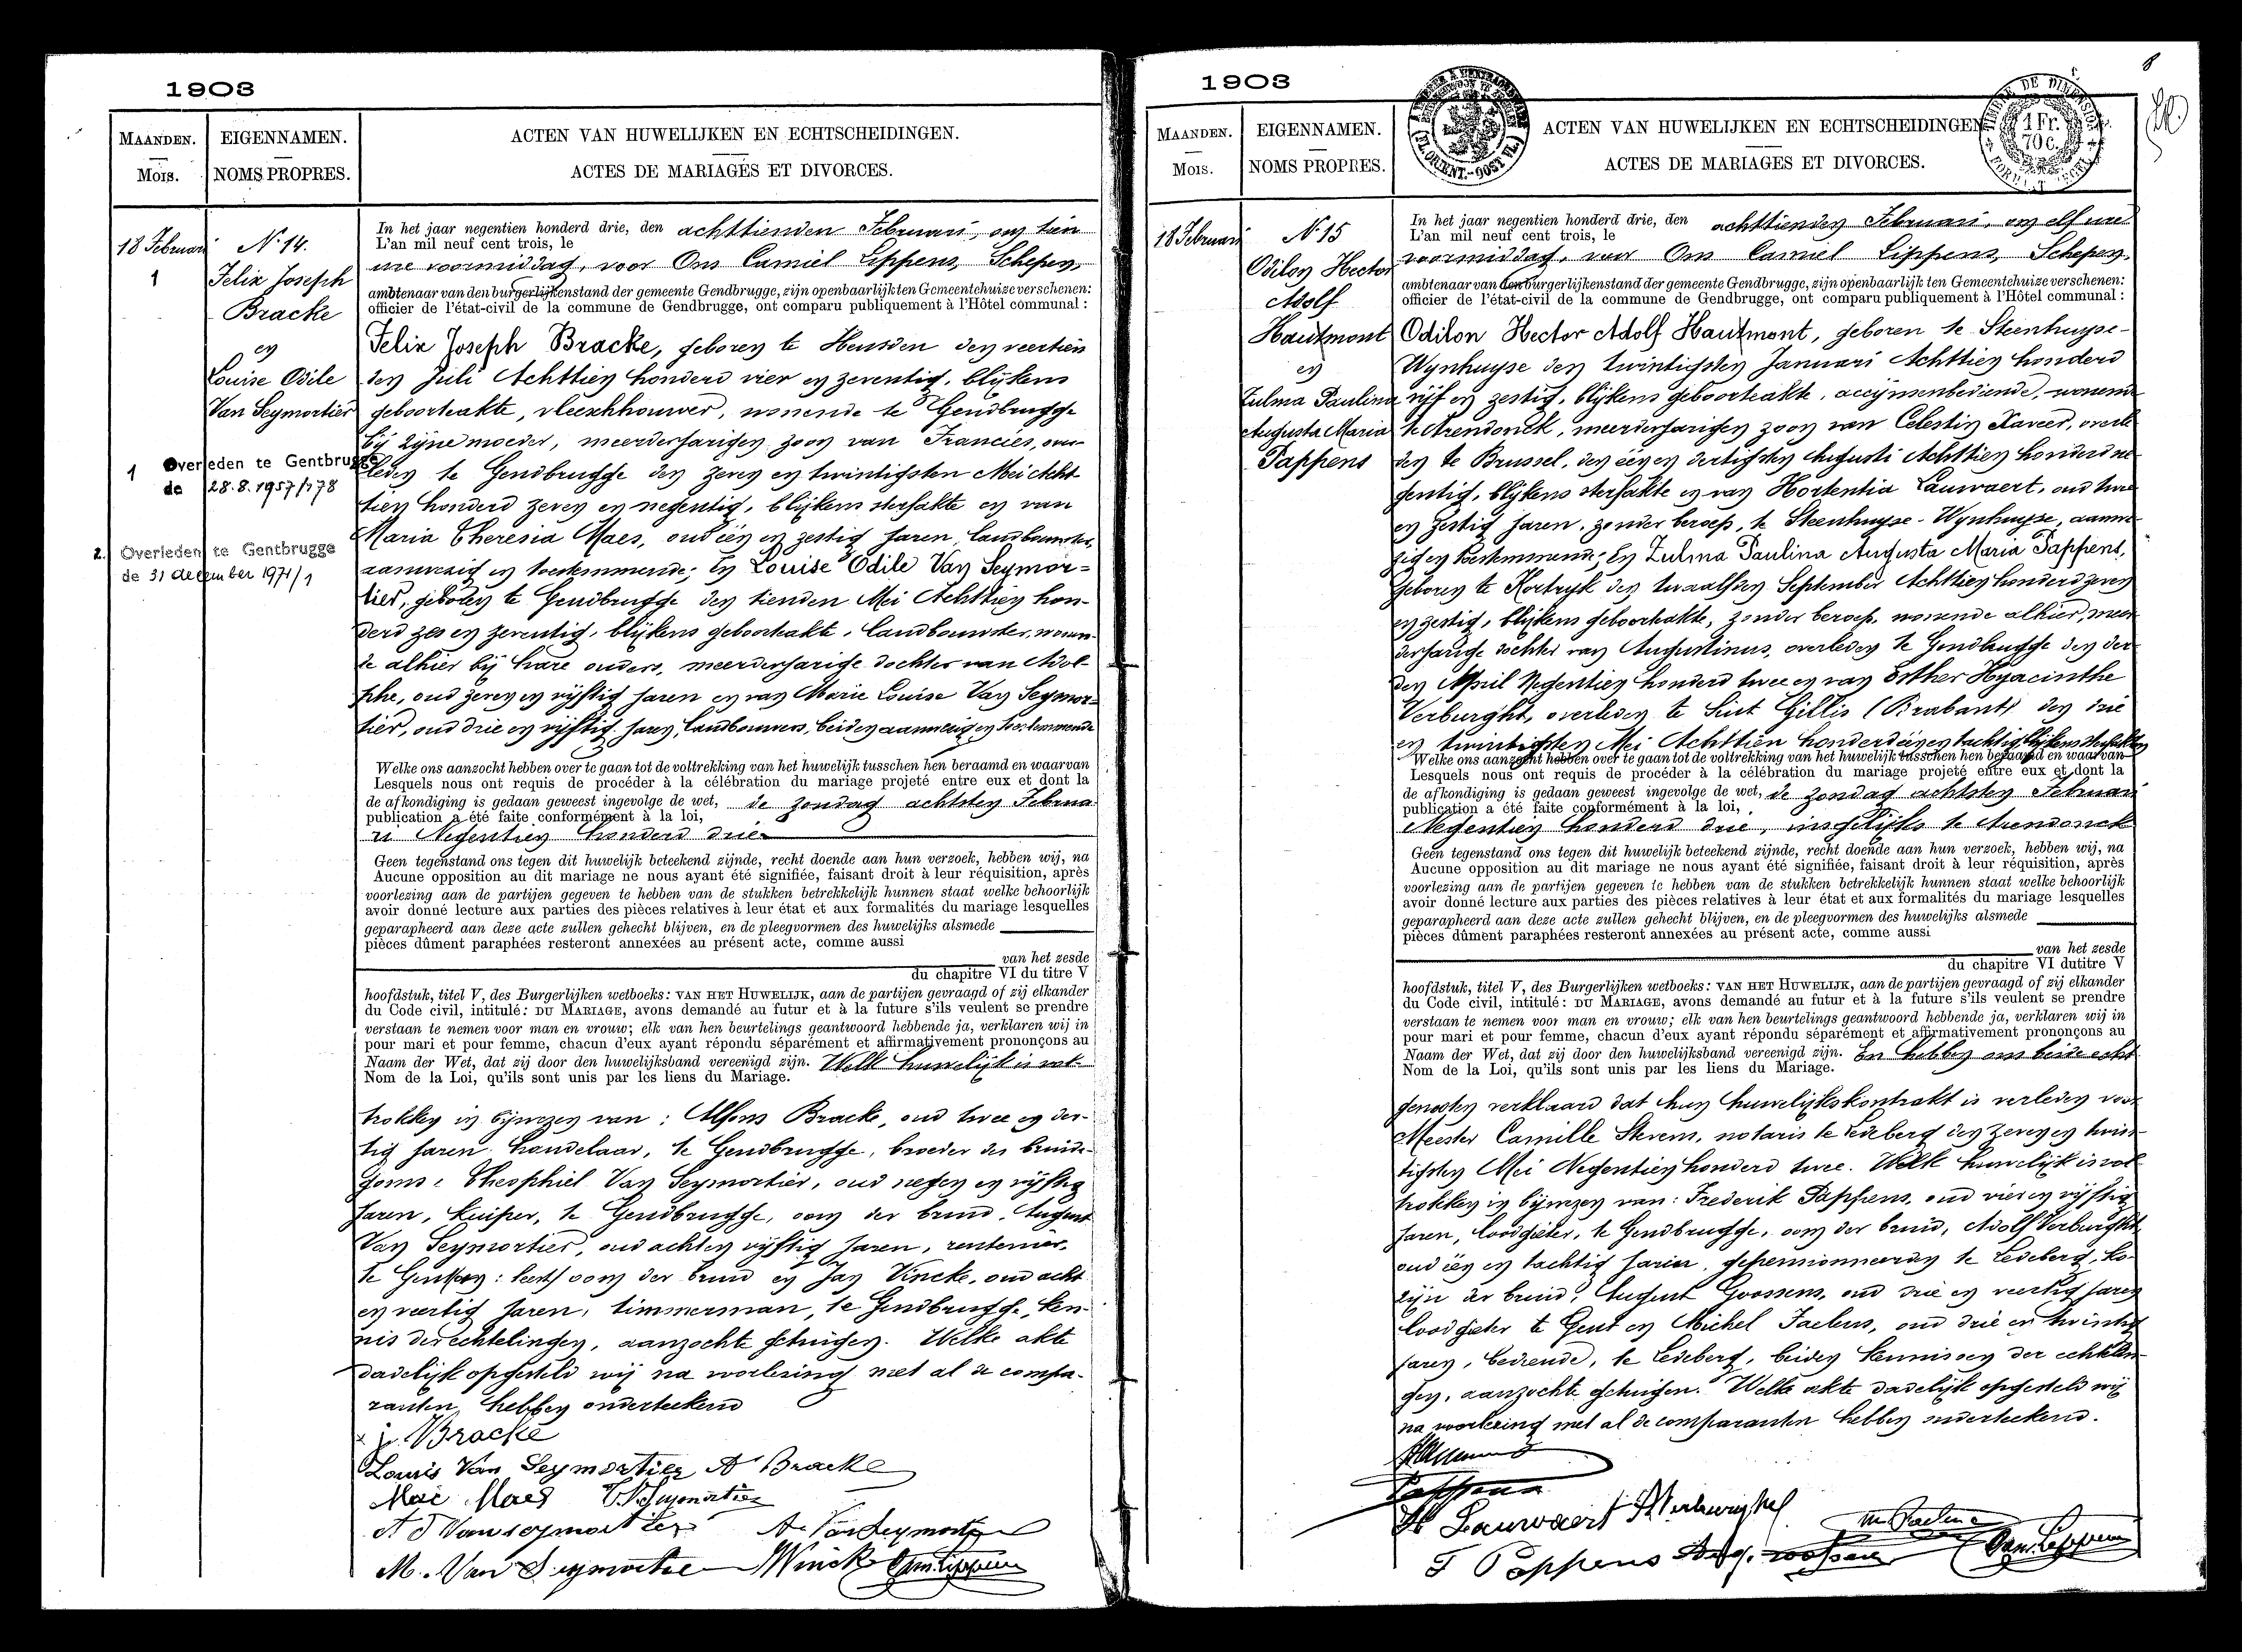 1903
MAANDEN.
Mois.
EIGENNAMEN.
NOMS PROPRES.
ACTEN VAN HUWELIJKEN EN ECHTSCHEIDINGEN.
ACTES DE MARIAGES ET DIVORCES.
18 Februari
1
N. 14.
Felix Joseph
Bracke
en
Louise Odile
Van Seymortier
1 Overleden te Gentbrugge
de 28.8.1957/178
2. Overleden te Gentbrugge
de 31 december 1971/1
In het jaar negentien honderd drie, den achttienden Februari, om tien
L'an mil neuf cent trois, le
ure voormiddag, voor Ons Camiel Lippens, Schepen,
ambtenaar van den burgerlijkenstand der gemeente Gendbrugge, zijn openbaarlijk ten Gemeentehuize verschenen:
officier de l'état-civil de la commune de Gendbrugge, ont comparu publiquement à l'Hôtel communal :
Felix Joseph Bracke, geboren te Heusden den veertien
den Juli Achttien honderd vier en zeventig, blijkens
geboorteakte, vleeschhouwer, wonende te Gendbrugge
bij zijne moeder, meerderjarigen zoon van Francies, over
leden te Gendbrugge den zeven en twintigsten Mei Acht
tien honderd zeven en negentig, blijkens sterfakte en van
Maria Theresia Maes, oud één en zestig jaren, landbouwster,
aanwezig en toestemmende; En Louise Odile Van Seymor=
tier, geboren te Gendbrugge den tienden Mei Achttien hon-
derd zes en zeventig, blijkens geboorteakte, landbouwster, wonen-
de alhier bij hare ouders, meerderjarige dochter van Adol-
phe, oud zeven en vijftig jaren en van Marie Louise Van Seymor=
tier, oud drie en vijftig jaren, landbouwers, beiden aanwezig en toestemmende
Welke ons aanzocht hebben over te gaan tot de voltrekking van het huwelijk tusschen hen beraamd en waarvan
Lesquels nous ont requis de procéder à la célébration du mariage projeté entre eux et dont la
de afkondiging is gedaan geweest ingevolge de wet, de zondag achtsten Februa-
publication a été faite conformément à la loi,
ri Negentien honderd drie
Geen tegenstand ons tegen dit huwelijk beteekend zijnde, recht doende aan hun verzoek, hebben wij, na
Aucune opposition au dit mariage ne nous ayant été signifiée, faisant droit à leur réquisition, après
voorlezing aan de partijen gegeven te hebben van de stukken betrekkelijk hunnen staat welke behoorlijk
avoir donné lecture aux parties des pièces relatives à leur état et aux formalités du mariage lesquelles
geparapheerd aan deze acte zullen gehecht blijven, en de pleegvormen des huwelijks alsmede
pièces dûment paraphées resteront annexées au présent acte, comme aussi
van het zesde
du chapitre VI du titre V
hoofdstuk, titel V, des Burgerlijken wetboeks: VAN HET HUWELIJK, aan de partijen gevraagd of zij elkander
du Code civil, intitulé: DU MARIAGE, avons demandé au futur et à la future s'ils veulent se prendre
verstaan te nemen voor man en vrouw; elk van hen beurtelings geantwoord hebbende ja, verklaren wij in
pour mari et pour femme, chacun d'eux ayant répondu séparément et affirmativement prononçons au
Naam der Wet, dat zij door den huwelijksband vereenigd zijn. Welk huwelijk is vol-
Nom de la Loi, qu'ils sont unis par les liens du Mariage.
trokken in bijwezen van: Alfons Bracke, oud twee en der-
tig jaren, handelaar, te Gendbrugge, broeder des bruide-
goms, Theophiel Van Seymortier, oud negen en vijftig
jaren, kuiper, te Gendbrugge, oom der bruid, August
Van Seymortier, oud acht en vijftig jaren, rentenier,
te : leest/ oom der bruid en Jan Vincke, oud acht
en veertig jaren, timmerman, te Gendbrugge, ken-
nis der echtelingen, aanzochte getuigen. Welke akte
dadelijk opgesteld wij na voorlezing met al de compa-
ranten, hebben onderteekend
j. Bracke
Louis Van Seymortier A Bracke
Mai Maes T. V. Seymortier
A d Vanseymortier A. Van Seymortier
M. Van Seymortier J Vincke Cam. Lippens
1903
8
MAANDEN.
Mois.
EIGENNAMEN.
NOMS PROPRES.
ACTEN VAN HUWELIJKEN EN ECHTSCHEIDINGEN.
ACTES DE MARIAGES ET DIVORCES.
(FL. ORIENT.-OOST VL.)
TIMBRE DE DIMENSION
1 Fr.
70 c.
18 Februari
N. 15
Odilon Hector
Adolf
Hautmont
en
Zulma Paulina
Augusta Maria
Pappens
In het jaar negentien honderd drie, den achttienden Februari, om elf ure
L'an mil neuf cent trois, le
voormiddag, voor Ons Camiel Lippens, Schepen,
ambtenaar van den burgerlijkenstand der gemeente Gendbrugge, zijn openbaarlijk ten Gemeentehuize verschenen:
officier de l'état-civil de la commune de Gendbrugge, ont comparu publiquement à l'Hôtel communal :
Odilon Hector Adolf Hautmont, geboren te Steenhuyse-
Wynhuyse den twintigsten Januari Achttien honderd
vijf en zestig, blijkens geboorteakte, accijnsenbediende, wonende
te Arendonck, meerderjarigen zoon van Celestin Xaveer, overle
den te Brussel, den één en dertigsten Augusti Achttien honderd ne
gentig, blijkens sterfakte en van Hortentia Lauwaert, oud twee
en zestig jaren, zonder beroep, te Steenhuyse-Wynhuyse, aanwe
zig en toestemmend; En Zulma Paulina Augusta Maria Pappens,
geboren te Kortryk den twaalfden September Achttien honderd zeven
en zestig, blijkens geboorteakte, zonder beroep, wonende alhier, meer
derjarige dochter van Augustinus, overleden te Gendbrugge den der
den April Negentien honderd twee en van Esther Hyacinthe
Verburght, overleden te Sint Gillis (Brabant) den drie
en twintigsten Mei Achttien honderd één en tachtig blijkens sterfakten
Welke ons aanzocht hebben over te gaan tot de voltrekking van het huwelijk tusschen hen beraamd en waarvan
Lesquels nous ont requis de procéder à la célébration du mariage projeté entre eux et dont la
de afkondiging is gedaan geweest ingevolge de wet, de zondag achtsten Februari
publication a été faite conformément à la loi,
Negentien honderd drie, insgelijks te Arendonck
Geen tegenstand ons tegen dit huwelijk beteekend zijnde, recht doende aan hun verzoek, hebben wij, na
Aucune opposition au dit mariage ne nous ayant été signifiée, faisant droit à leur réquisition, après
voorlezing aan de partijen gegeven te hebben van de stukken betrekkelijk hunnen staat welke behoorlijk
avoir donné lecture aux parties des pièces relatives à leur état et aux formalités du mariage lesquelles
geparapheerd aan deze acte zullen gehecht blijven, en de pleegvormen des huwelijks alsmede
pièces dûment paraphées resteront annexées au présent acte, comme aussi
van het zesde
du chapitre VI dutitre V
hoofdstuk, titel V, des Burgerlijken wetboeks: VAN HET HUWELIJK, aan de partijen gevraagd of zij elkander
du Code civil, intitulé: DU MARIAGE, avons demandé au futur et à la future s'ils veulent se prendre
verstaan te nemen voor man en vrouw; elk van hen beurtelings geantwoord hebbende ja, verklaren wij in
pour mari et pour femme, chacun d'eux ayant répondu séparément et affirmativement prononçons au
Naam der Wet, dat zij door den huwelijksband vereenigd zijn. En hebben ons beide echt
Nom de la Loi, qu'ils sont unis par les liens du Mariage.
genooten verklaard dat hun huwelijkskontrakt is verleden voor
Meester Camille Stevens, notaris te Ledeberg den zeven en twin-
tigsten Mei Negentien honderd twee. Welk huwelijk is vol
trokken in bijwezen van: Frederik Pappens, oud vier en vijftig
jaren, loodgieter, te Gendbrugge, oom der bruid, Adolf Verburght
oud één en tachtig jaren, gepensionneerden te Ledeberg, ko-
zijn der bruid, August Goossens, oud drie en veertig jaren
loodgieter te Gent en Michel Jaebens, oud drie en twintig
jaren, bediende, te Ledeberg, beiden kennissen der echtelin-
gen, aanzochte getuigen. Welke akte dadelijk opgesteld wij
na voorlezing met al de comparanten hebben onderteekend.
Pappens
H Lauwaert
F Pappens Aug. Goossens Cam. Lippens